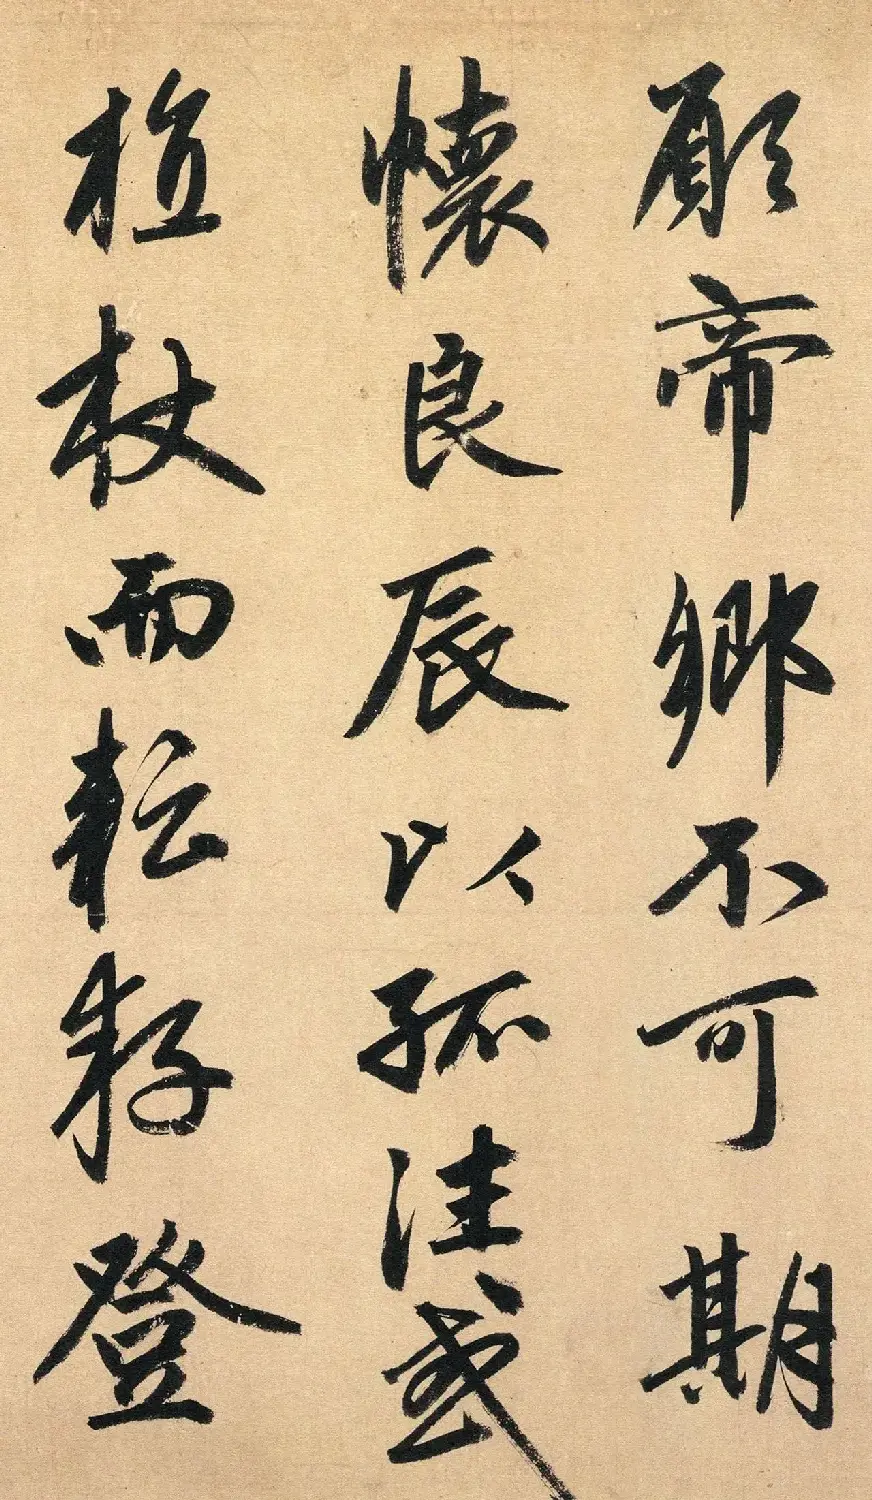 願帝鄉不可期
懷良辰以孤往或
植杖而耘耔登